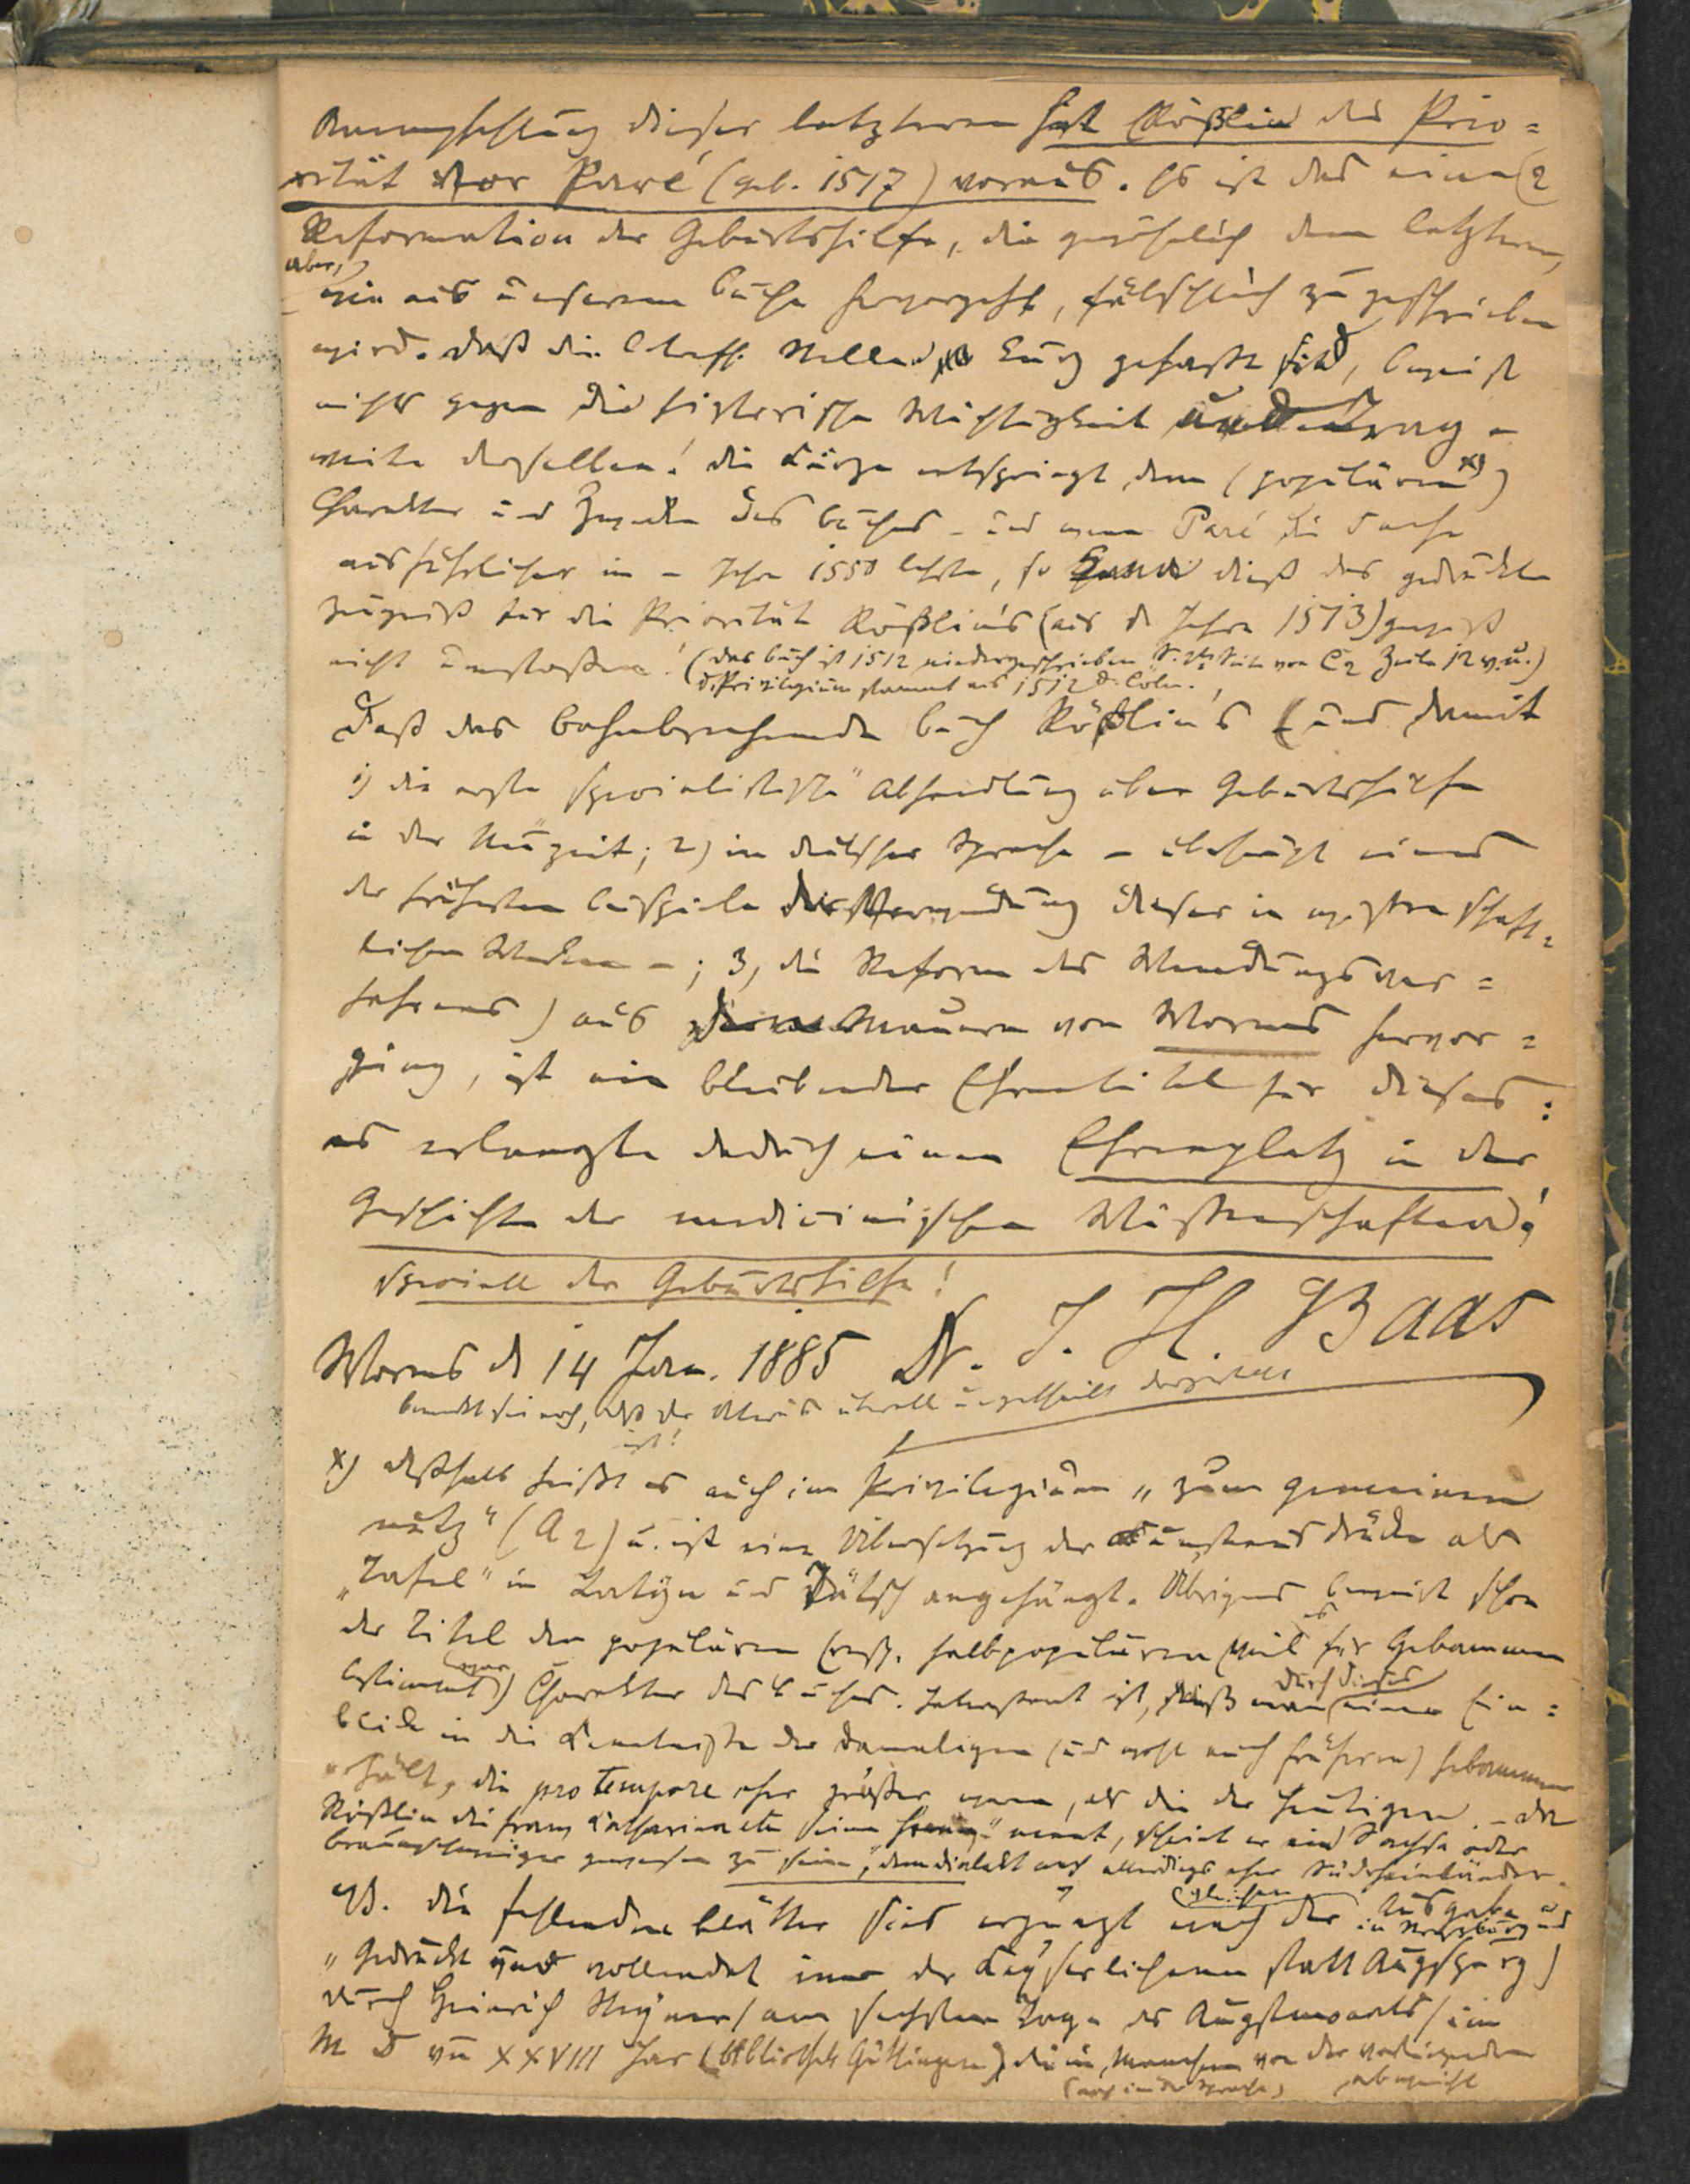 Anempfehlung dieser letzteren hat Rößlin die Prio=
rität vor Paré (geb. 1517) voraus. Es ist das eine (2
Reformation der Geburtshilfe, die gewöhnlich dem letzteren,
aber,
wie aus unserem Buche hervorgeht, fälschlich zugeschrieben
wird. Daß die betreff. Stellen kurz gefasst sind, beweist
nichts gegen die historische Wichtigkeit und Trag-
weite derselben! die Kürze entspringt dem (populären x))
Charakter und Zwecke des Buches - und wenn Paré die Sache
ausführlicher im Jahre 1550 lehrte, so kann dieß das gedruckte
Zeugniß für die Priorität Rößlin's (aus d. Jahre 1513) gewiß
nicht umstoßen! (das Buch ist 1512 niedergeschrieben S. Seite von C2 Zeile 12 v. u.)
d. Privilegium stammt aus 1512 d. Cöln.
Daß das bahnbrechende Buch Rößlin's (und damit
1) die erste „specialistische" Abhandlung über Geburtshülfe
in der Neuzeit; 2) in deutscher Sprache - überhaupt eines
der frühesten Beispiele der Verwendung dieser in wissenschaft=
lichen Werken -; 3, die Reform des Wendungsver=
fahrens) aus den Mauern von Worms hervor=
ging, ist ein bleibender Ehrentitel für dieses:
es erlangte dadurch einen Ehrenplatz in der
Geschichte der medicinischen Wissenschaften!
speciell der Geburtshilfe!
Worms d. 14 Jan. 1885 Dr. J. H. Baas
bemerkt sei noch, daß der Uterus überall ungetheilt dargestellt
ist!
x) deßhalb heißt es auch im Privilegium „zum gemeinen
nutz" (A 2) u. ist eine Übersetzung der Kunstausdrücke als
„Tafel" in Latyn und Dütsch angehängt. Übrigens beweist schon
der Titel den populären (resp. halbpopulären (weil es für Hebammen
bestimmt war) Charakter des Buches. Interessant ist, daß man durch dieses einen Ein=
blick in die Kenntnisse der damaligen (und wohl auch früheren) Hebammen
erhält, die pro tempore eher größer waren, als die der heutigen. - da
Rößlin die Frau Katharina etc seine nennt, scheint er ein Sachse oder
Braunschweiger gewesen zu sein, dem Dialekt nach allerdings eher Südrheinländer.
NB. die fehlenden Blätter sind ergänzt nach der gleichen Ausgabe
in Straßburg und
„Gedruckt und vollendet inn der Keyserlichenn statt Augspurg)
durch Heinrich Steyner / am sechsten Tage des Augstmonats / im
M D vn XXVIII Jar (Bibliothek Göttingen) die in Manchem von der vorliegenden
(auch in der Sprache) abweicht